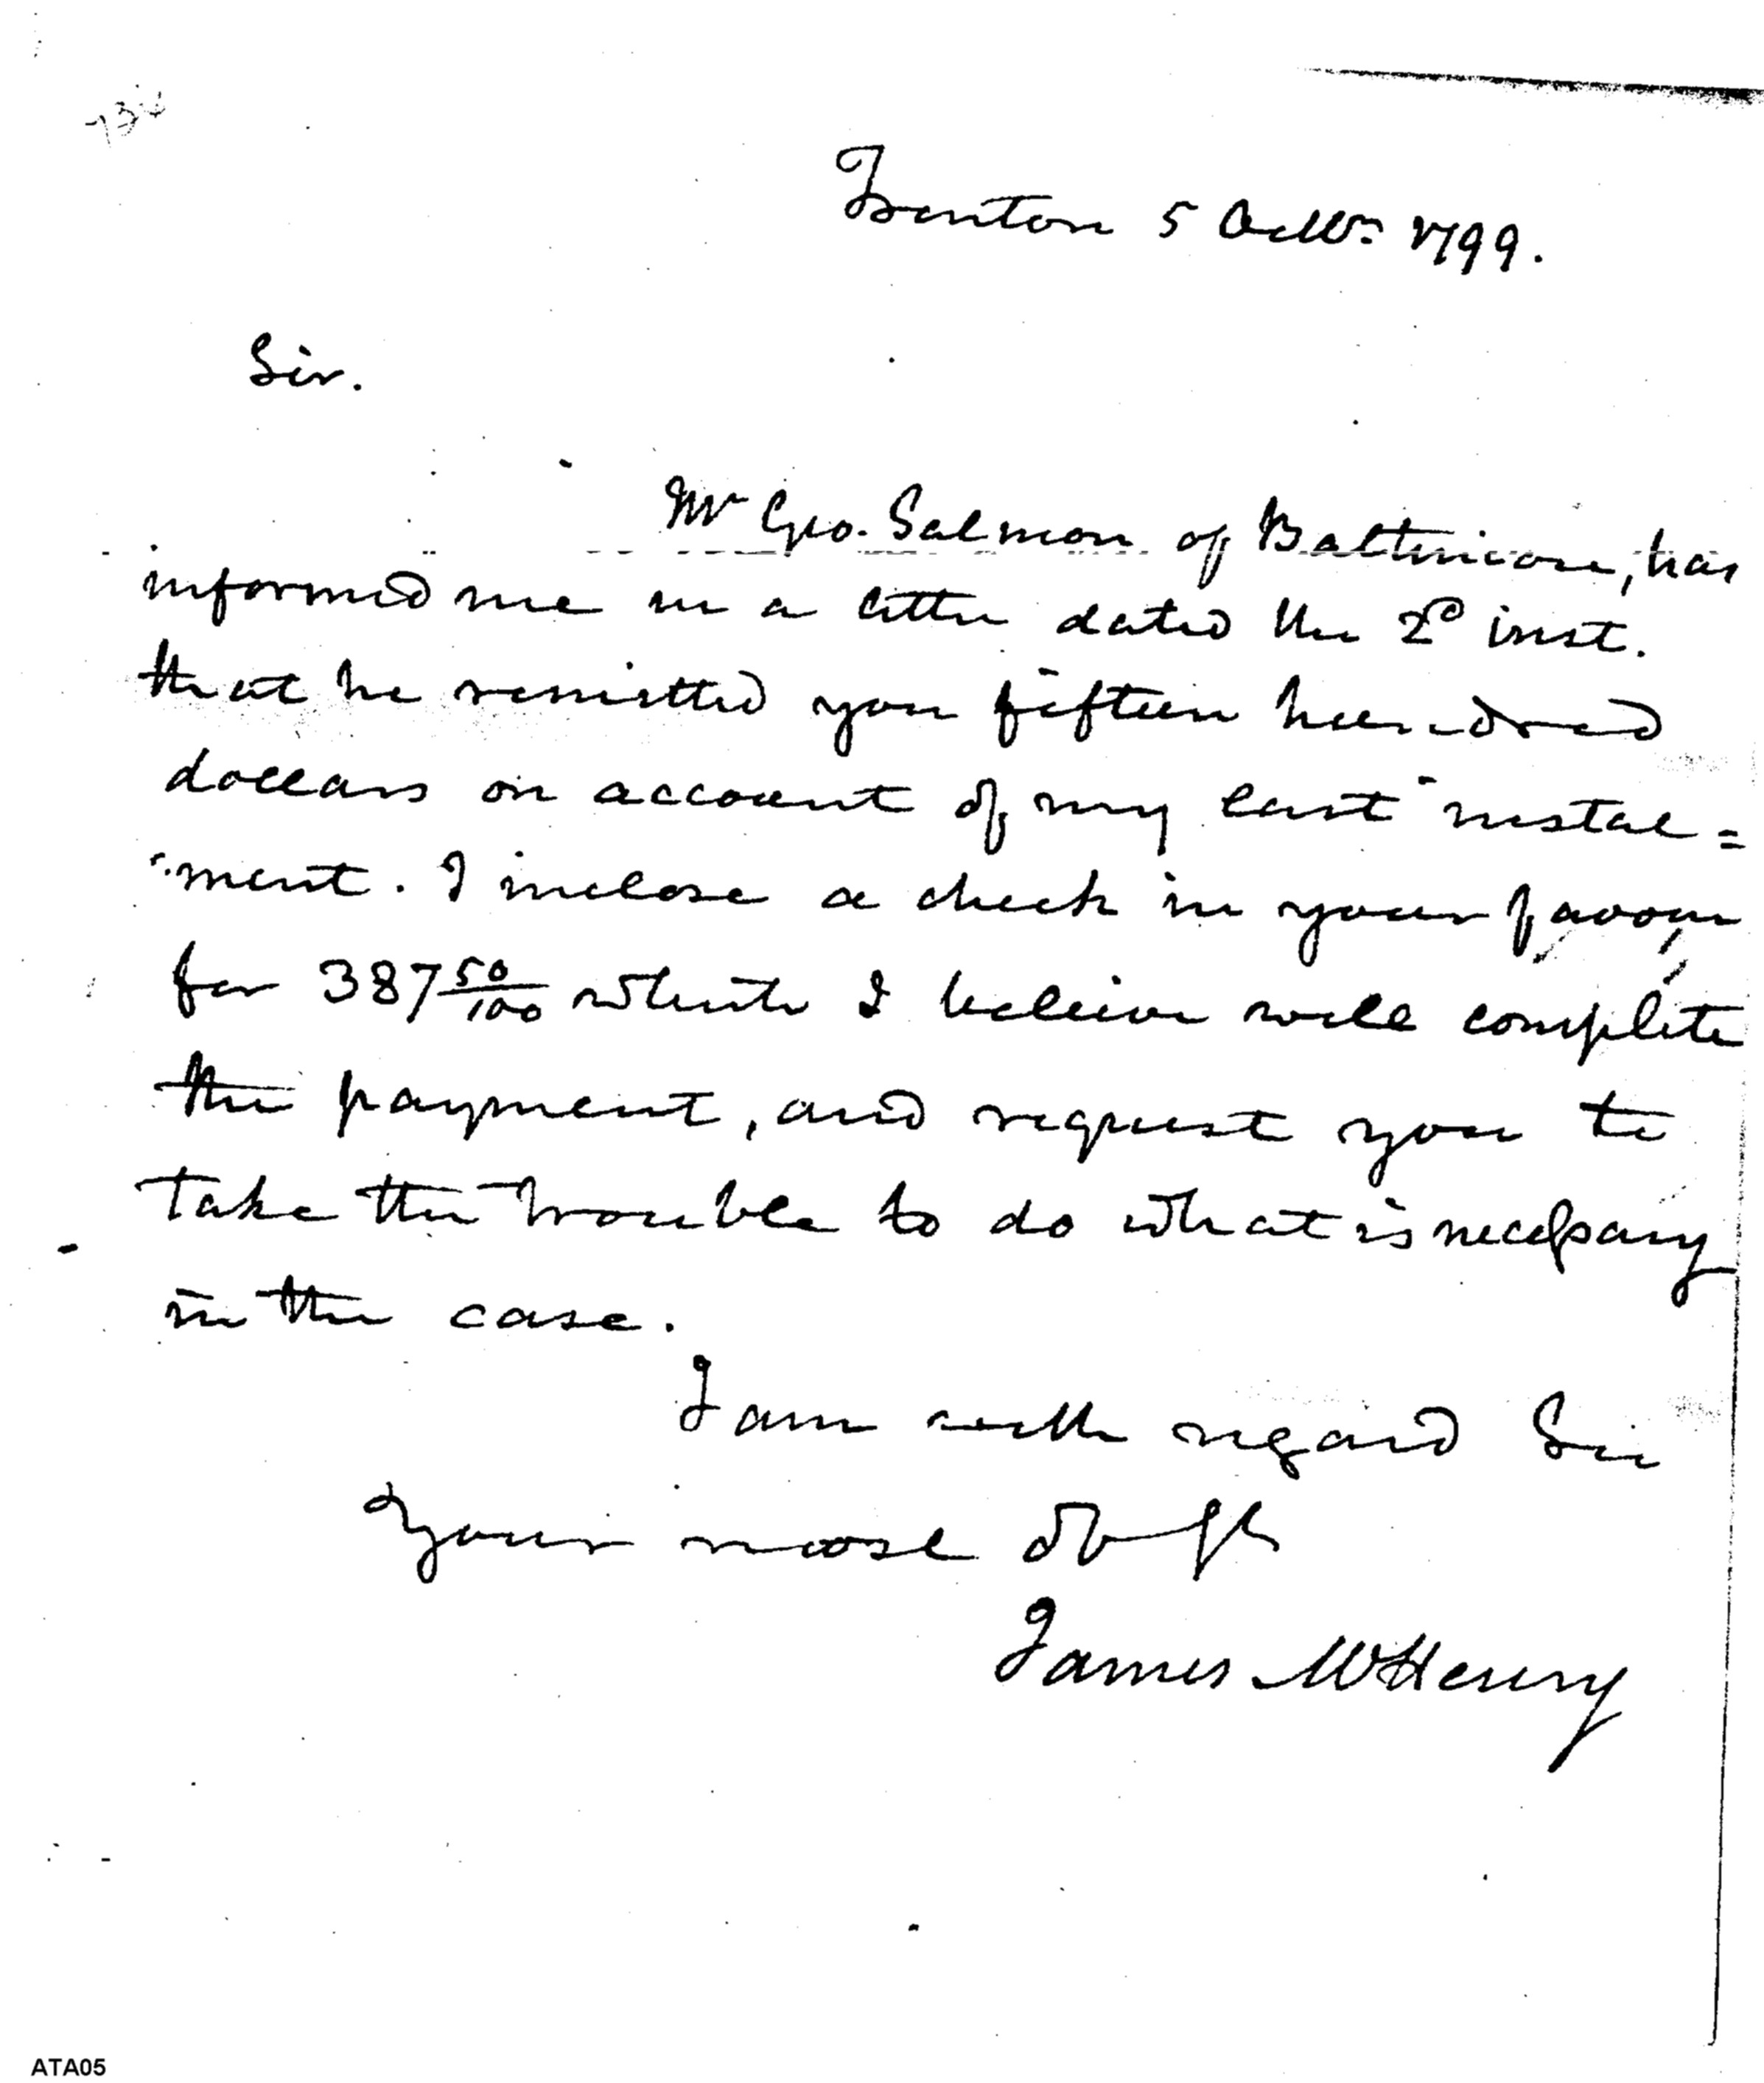 Trenton 5 Octbr. 1799.
Sir.
Mr Geo. Salmon of Baltimore, has
informed me in a letter dated the 2d inst.
that he remitted you fifteen hundred
dollars on account of my last instal=
"ment. I inclose a check in your favour
for 387 50/100 which I believe will complete
the payment, and request you to
take the trouble to do what is necessary
in the case.
I am with regard Sir
Your most ob st
James McHenry
ATA05